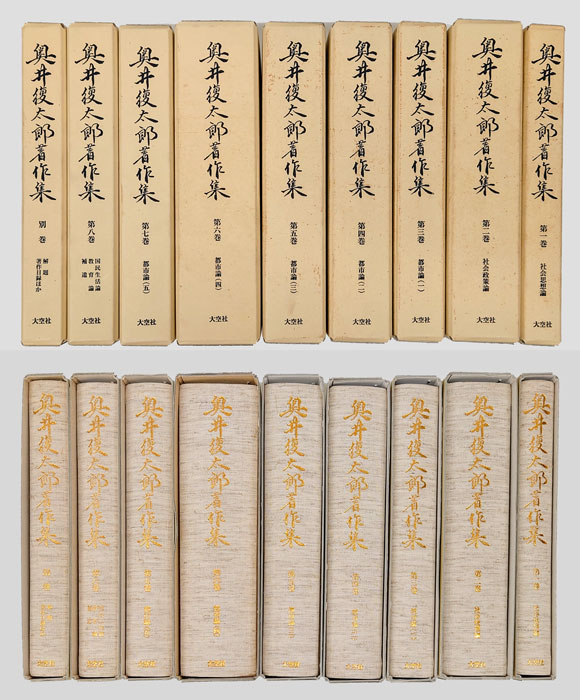 奥井復太郎著作集
第一巻
社会思想論
大空社
奥井復太郎著作集
第二巻
社会政策論
大空社
奥井復太郎著作集
第三巻
都市論(一)
大空社
奥井復太郎著作集
第四巻
都市論(二)
大空社
奥井復太郎著作集
第五巻
都市論(三)
大空社
奥井復太郎著作集
第六巻
都市論(四)
大空社
奥井復太郎著作集
第七巻
都市論(五)
大空社
奥井復太郎著作集
第八巻
国民生活論
教育論
補遺
大空社
奥井復太郎著作集
別巻
解題
著作目録ほか
大空社
奥井復太郎著作集
大空社
奥井復太郎著作集
第二巻
大空社
奥井復太郎著作集
大空社
奥井復太郎著作集
大空社
奥井復太郎著作集
大空社
奥井復太郎著作集
大空社
奥井復太郎著作集
大空社
奥井復太郎著作集
大空社
奥井復太郎著作集
大空社